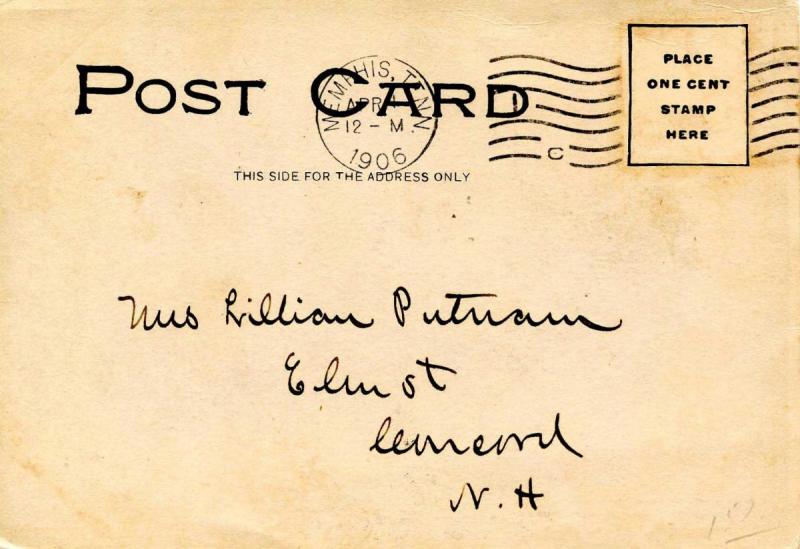 POST CARD
MEMPHIS, TENN
APR
12 - M.
1906
C
PLACE
ONE CENT
STAMP
HERE
THIS SIDE FOR THE ADDRESS ONLY
Lillian Putnam
Elm st
Concord
N. H